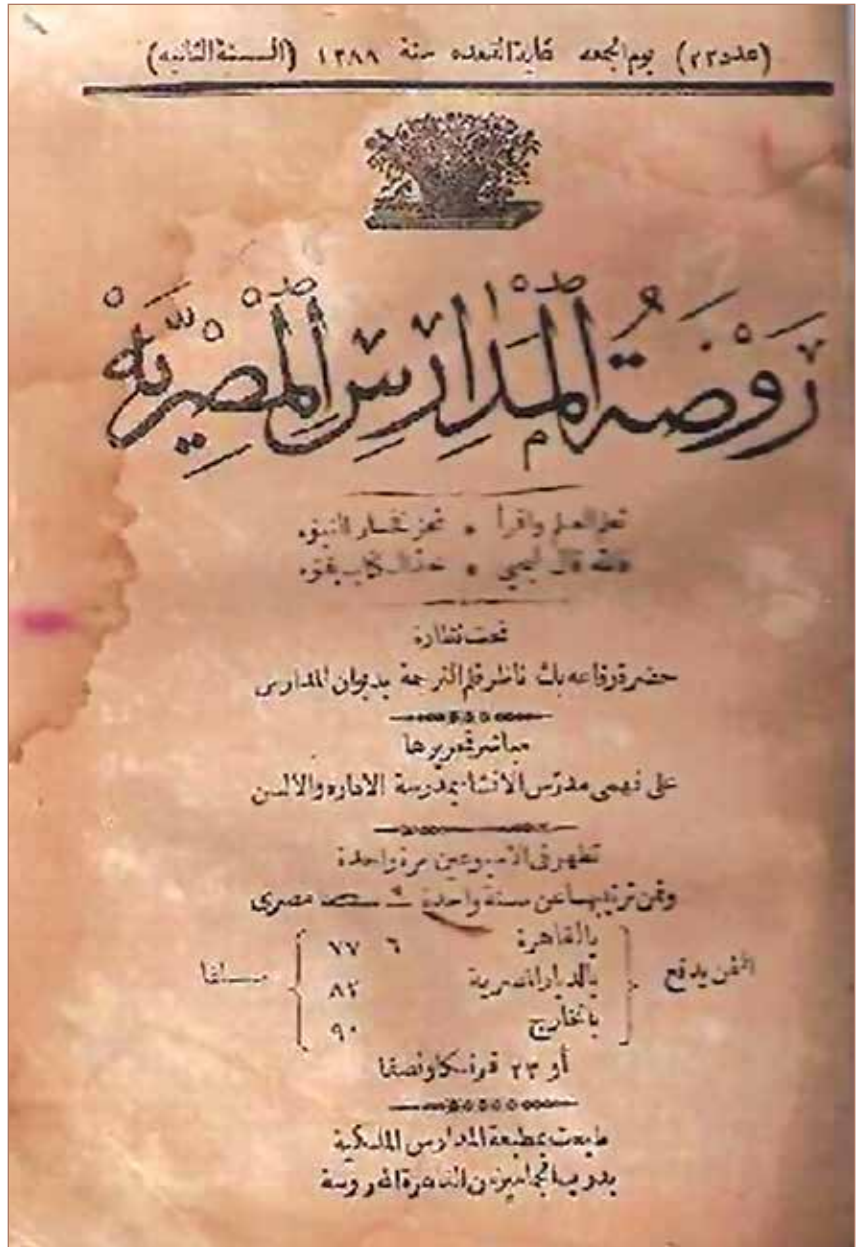 (عدد ٢٢) يوم الجمعه غاية القعده سنة ١٢٨٨ (السنة الثانيه)
رَوْضَةُ الْمَدَارِسِ الْمِصْرِيَّهْ
تعلم العلم واقرأ * تحز فخار النبوه
فالله قال ليحيى * خذ الكتاب بقوه
تحت نظارة
حضرة رفاعه بك ناظر قلم الترجمة بديوان المدارس
مباشر تحريرها
على فهمى مدرّس الانشا بمدرسة الاداره والالسن
تظهر فى الاسبوعين مرة واحدة
وثمن ترتيبها عن سنة واحدة مصرى
الثمن يدفع
بالقاهرة ٦ ٧٧
بالديار المصرية ٨٢
بالخارج ٩٠
سلفا
أو ٢٣ فرنكا ونصفا
طبعت بمطبعة المدارس الملكية
بدرب الجماميز من القاهرة المحروسة